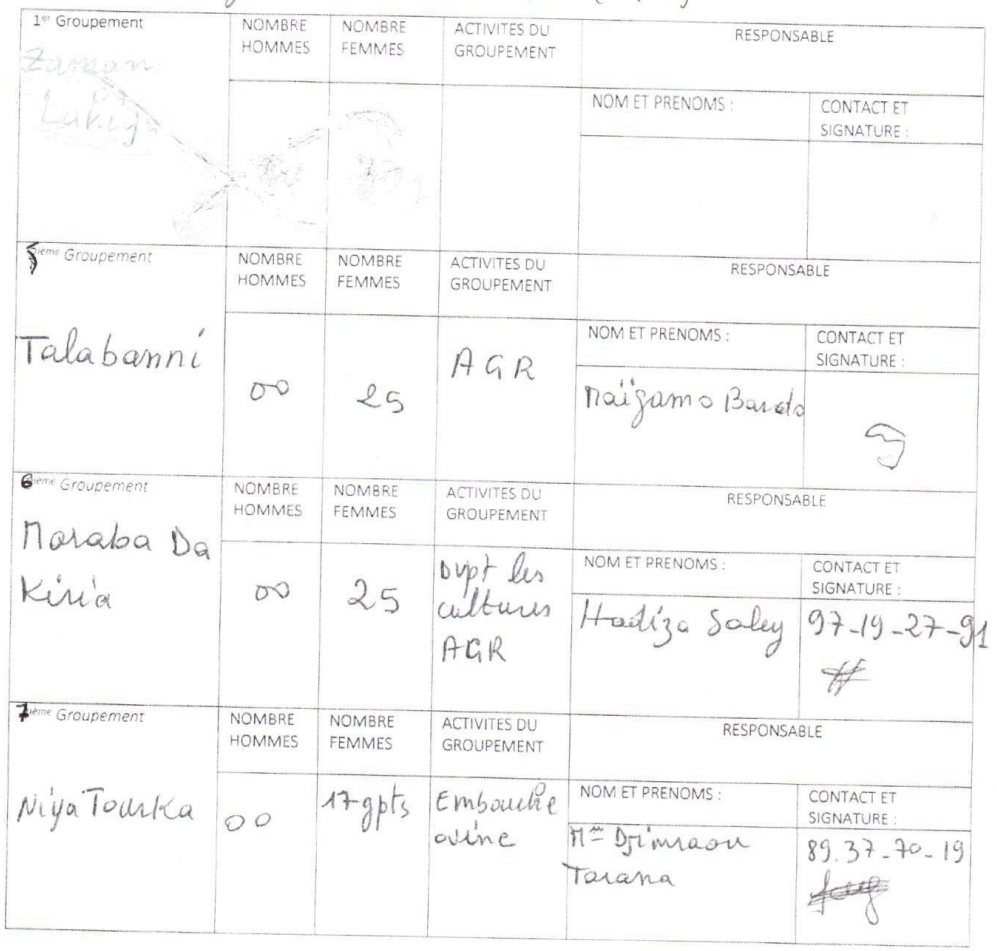 1er Groupement
NOMBRE HOMMES
NOMBRE FEMMES
ACTIVITES DU GROUPEMENT
RESPONSABLE
Zaman
Lukuja
NOM ET PRENOMS :
CONTACT ET SIGNATURE :
5ième Groupement
NOMBRE HOMMES
NOMBRE FEMMES
ACTIVITES DU GROUPEMENT
RESPONSABLE
Talabanni
00
25
AGR
NOM ET PRENOMS :
CONTACT ET SIGNATURE :
Maïgamo Bardo
6ième Groupement
NOMBRE HOMMES
NOMBRE FEMMES
ACTIVITES DU GROUPEMENT
RESPONSABLE
Maraba Da
Kiria
00
25
Dvpt les
cultures
AGR
NOM ET PRENOMS :
CONTACT ET SIGNATURE :
Hadiza Saley
97-19-27-91
7ième Groupement
NOMBRE HOMMES
NOMBRE FEMMES
ACTIVITES DU GROUPEMENT
RESPONSABLE
Niya Tourka
00
17 gpts
Embouche
ovine
NOM ET PRENOMS :
CONTACT ET SIGNATURE :
Mme Djimraou
Tarana
89.37-70-19